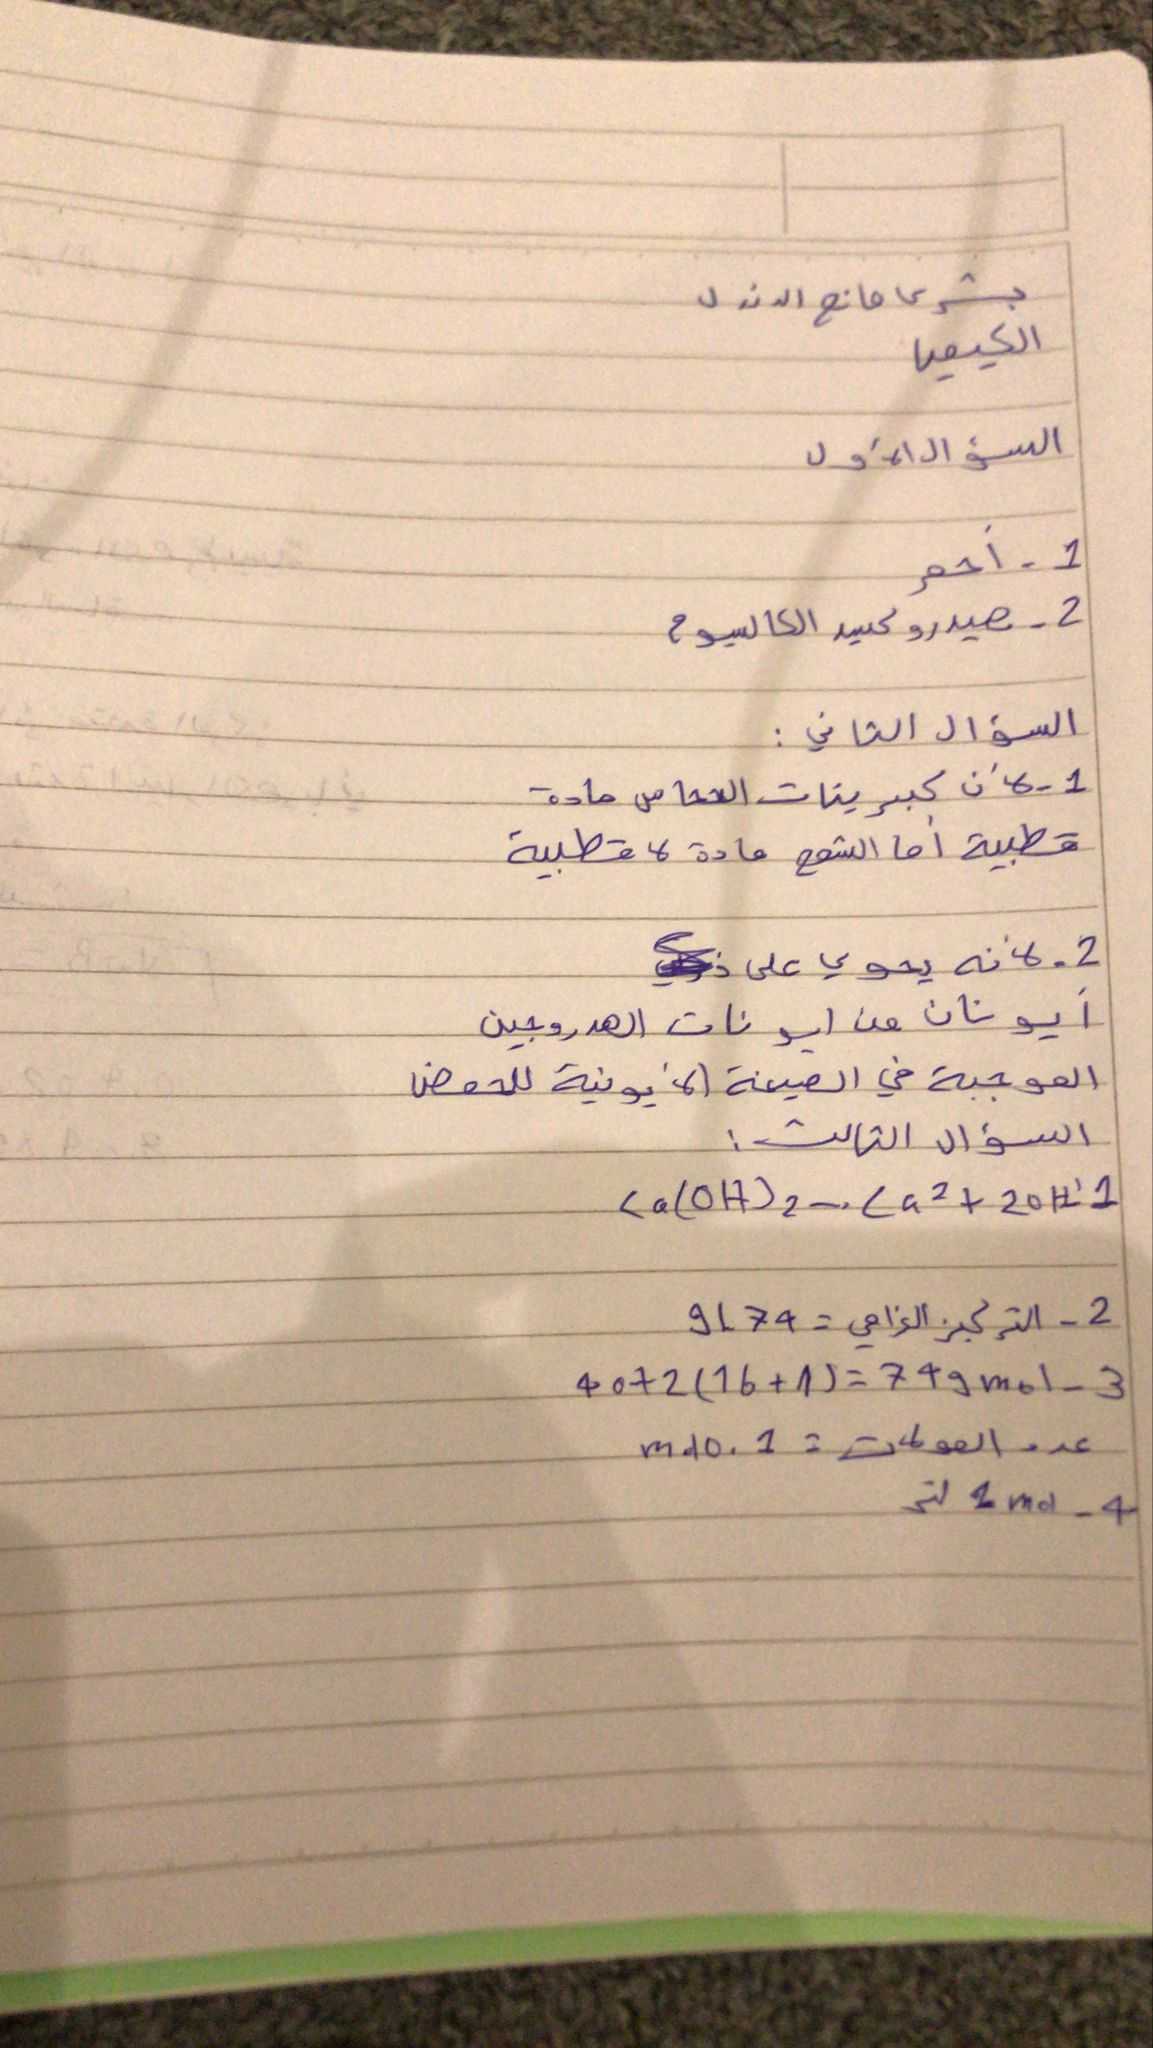 بشرى مانع الدندل
الكيميا
السؤال الأول
1 - أحمر
2 - هيدروكسيد الكالسيوم
السؤال الثاني :
1 - لأن كبريتات النحاس مادة
قطبية أما الشمع مادة لا قطبية
2 - لأنه يحوي على
أيونان من ايونات الهدروجين
الموجبة في الصيغة الأيونية للحمض
السؤال الثالث :
1 Ca(OH)2 → Ca2+ 2OH-
2 - التركيز الغرامي = 74 gL
3 - 40+2(16+1)=74gmol
عدد المولات = 0.1 mol
4 - 1mol لتر